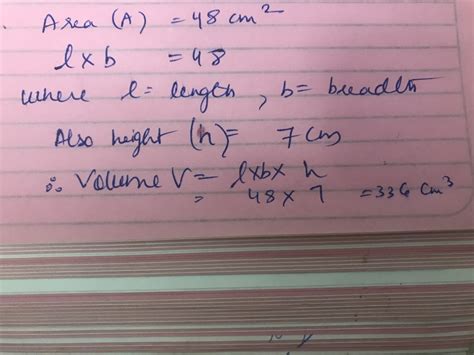 Area (A) = 48 cm²
l x b = 48
where l = length, b = breadth
Also height (h) = 7 cm
∴ Volume V = l x b x h
= 48 x 7 = 336 cm³